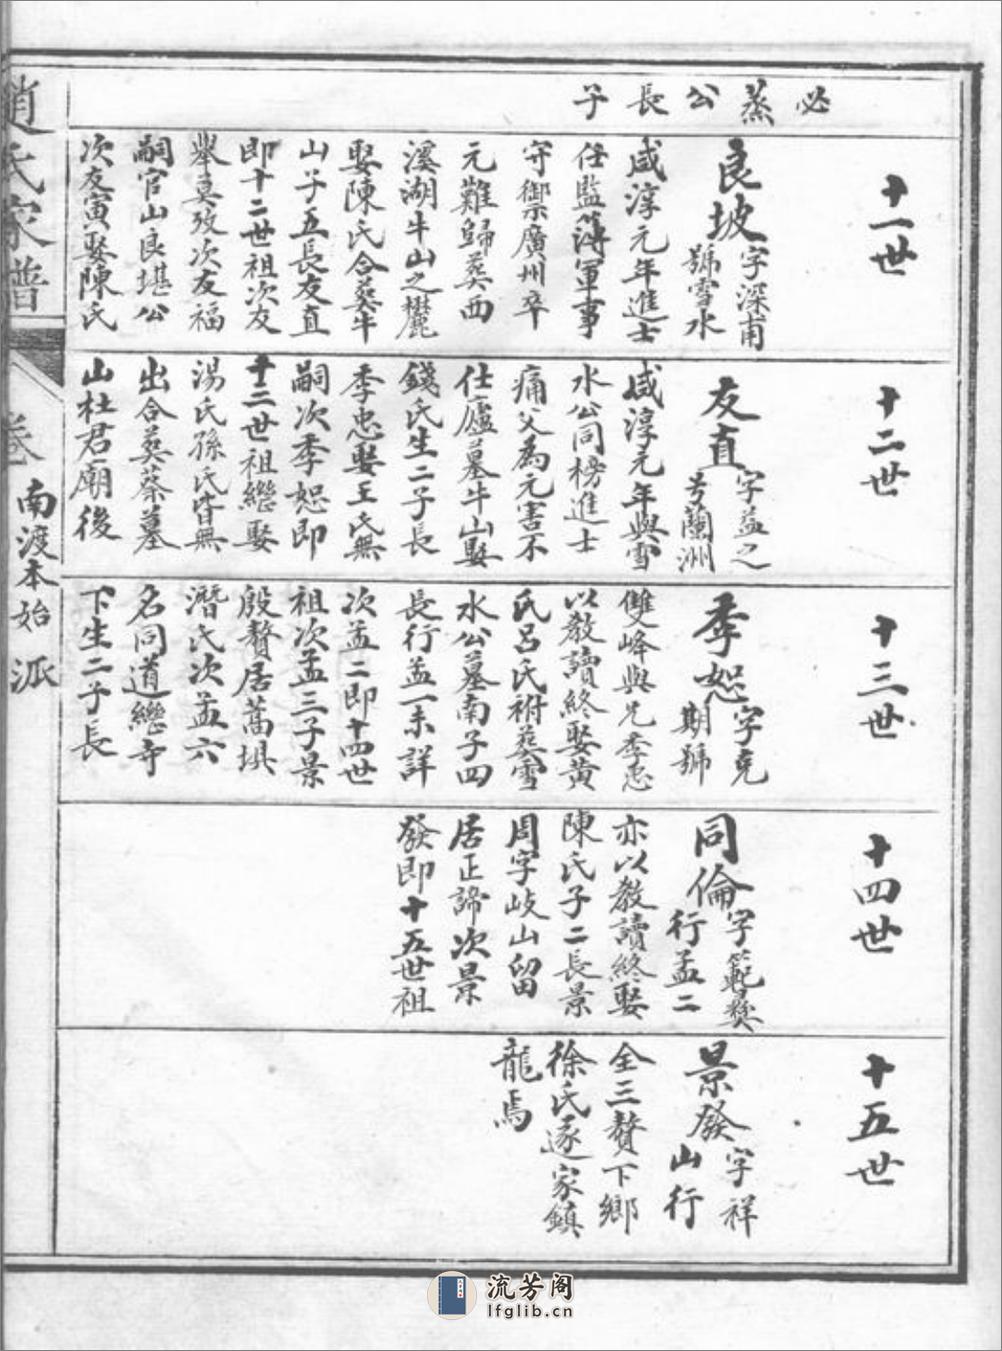 必蒸公長子
十一世
良坡
字深甫
號雪水
咸淳元年進士
任監簿軍事
守禦廣州卒
元難歸葬西
溪湖牛山之麓
娶陳氏合葬牛
山子五長友直
即十二世祖次友
舉莫攷次友福
嗣官山良堪公
次友寅娶陳氏
十二世
友直
字益之
号蘭洲
咸淳元年與雪
水公同榜進士
痛父為元害不
仕廬墓牛山娶
錢氏生二子長
季忠娶王氏無
嗣次季恕即
十三世祖繼娶
湯氏孫氏皆無
出合葬蔡墓
山杜君廟後
十三世
季恕
字克
期號
雙峰與兄季忠
以教讀終娶黄
氏吕氏祔葬雪
水公墓南子四
長行孟一未詳
次孟二即十四世
祖次孟三子景
殷贅居蒿垻
潛氏次孟六
名同道繼寺
下生二子長
十四世
同倫
字範獎
行孟二
亦以教讀終娶
陳氏子二長景
周字岐山留
居正諦次景
發即十五世祖
十五世
景發
字祥
山行
全三贅下鄉
徐氏遂家鎮
龍焉
趙氏家譜
卷
南渡本始派
流芳阁
lfglib.cn